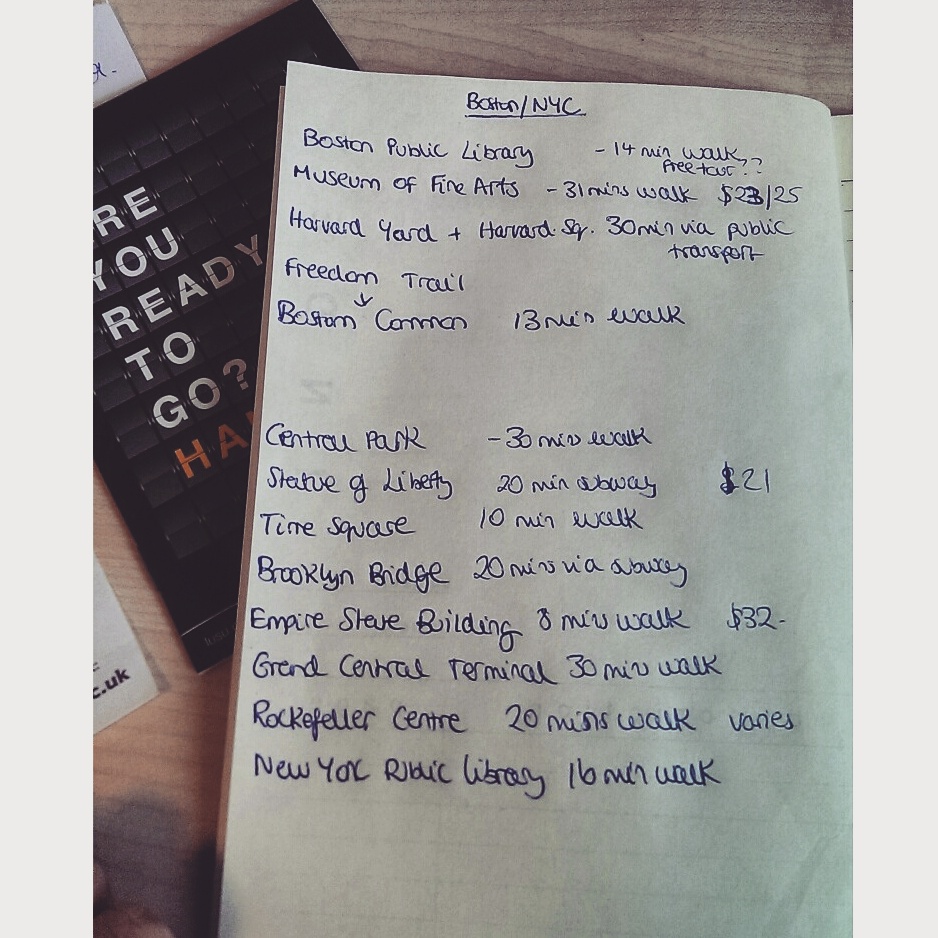 RE
YOU
READY
TO
GO?
HA
c.uk
Boston/NYC
Boston Public Library - 14 min walk
free tour??
Museum of Fine Arts - 31 mins walk $23/25
Harvard Yard + Harvard Sq. 30min via public
transport
Freedom Trail
↓
Boston Common 13 min walk
Central Park - 30 min walk
Statue of Liberty 20 min subway $21
Time Square 10 min walk
Brooklyn Bridge 20 mins via subway
Empire State Building 8 min walk $32-
Grand Central Terminal 30 min walk
Rockefeller Centre 20 mins walk varies
New York Public Library 16 min walk